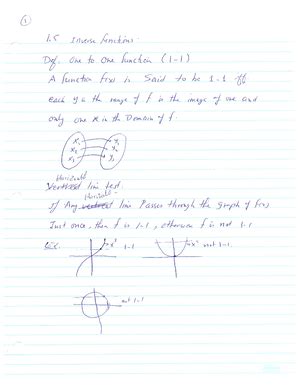 1
1.5 Inverse functions:
Def. one to one function (1-1)
A function f(x) is Said to be 1-1 iff
each y in the range of f is the image of one and
only one x in the Domain of f.
x1 y1
x2 y2
x3 y3
Horizontal
Vertical line test.
Horizontal
If Any vertical line Passes through the graph of f(x)
Just once, then f is 1-1, otherwise f is not 1-1
x³ 1-1 x² not 1-1
not 1-1